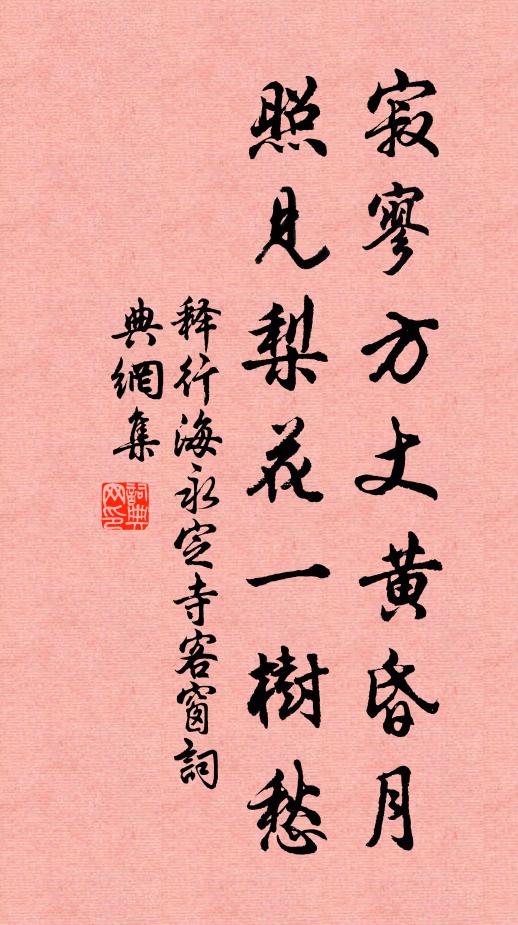 寂寥方丈黄昏月
照見梨花一樹愁
释行海永定寺客窗詞
典網集
詞典
网印